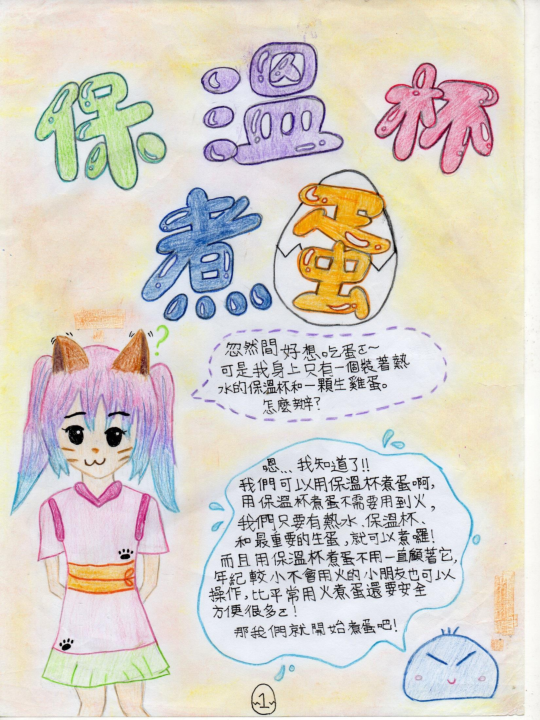 保溫杯
煮蛋
?
忽然間好想吃蛋ㄛ~
可是我身上只有一個裝著熱
水的保溫杯和一顆生雞蛋。
怎麼辦?
嗯...我知道了!!
我們可以用保溫杯煮蛋啊,
用保溫杯煮蛋不需要用到火,
我們只要有熱水、保溫杯、
和最重要的生蛋,就可以煮囉!
而且用保溫杯煮蛋不用一直顧著它,
年紀較小不會用火的小朋友也可以
操作,比平常用火煮蛋還要安全
方便很多ㄛ!
那我們就開始煮蛋吧!
1